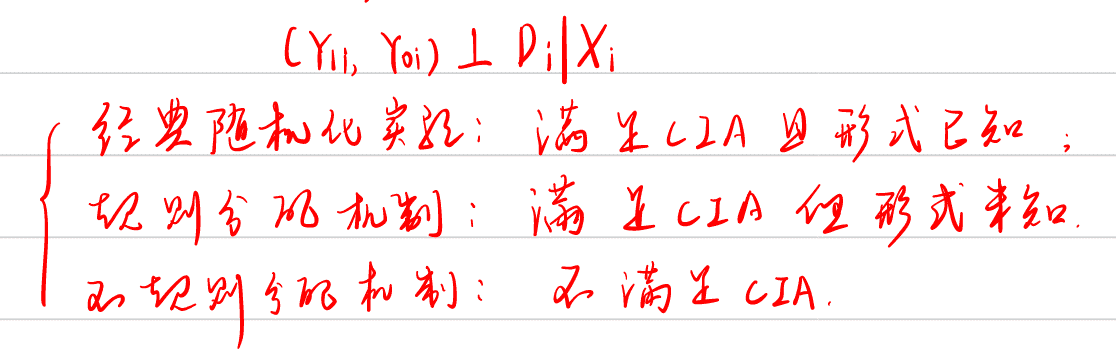 (Y₁ᵢ, Y₀ᵢ) ⊥ Dᵢ|Xᵢ
经典随机化实验：满足CIA且形式已知；
规则分配机制：满足CIA但形式未知.
不规则分配机制：不满足CIA.